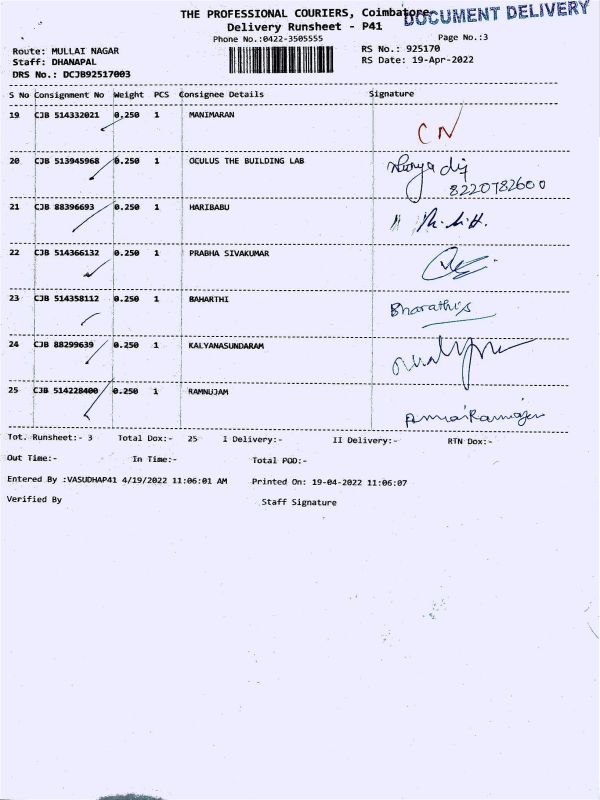 THE PROFESSIONAL COURIERS, Coimbatore-
DOCUMENT DELIVERY
Delivery Runsheet - P41
Phone No.:0422-3505555
Page No.:3
Route: MULLAI NAGAR
RS No.: 925170
Staff: DHANAPAL
RS Date: 19-Apr-2022
DRS No.: DCJB92517003
S No Consignment No Weight PCS Consignee Details Signature
19 CJB 514332021 0.250 1 MANIMARAN
CN
20 CJB 513945968 0.250 1 OCULUS THE BUILDING LAB
8220782600
21 CJB 88396693 0.250 1 HARIBABU
22 CJB 514366132 0.250 1 PRABHA SIVAKUMAR
23 CJB 514358112 0.250 1 BAHARTHI
Bharathi
24 CJB 88299639 0.250 1 KALYANASUNDARAM
25 CJB 514228400 0.250 1 RAMNUJAM
Tot. Runsheet:- 3 Total Dox:- 25 I Delivery:- II Delivery:- RTN Dox:-
Out Time:- In Time:- Total POD:-
Entered By :VASUDHAP41 4/19/2022 11:06:01 AM Printed On: 19-04-2022 11:06:07
Verified By Staff Signature